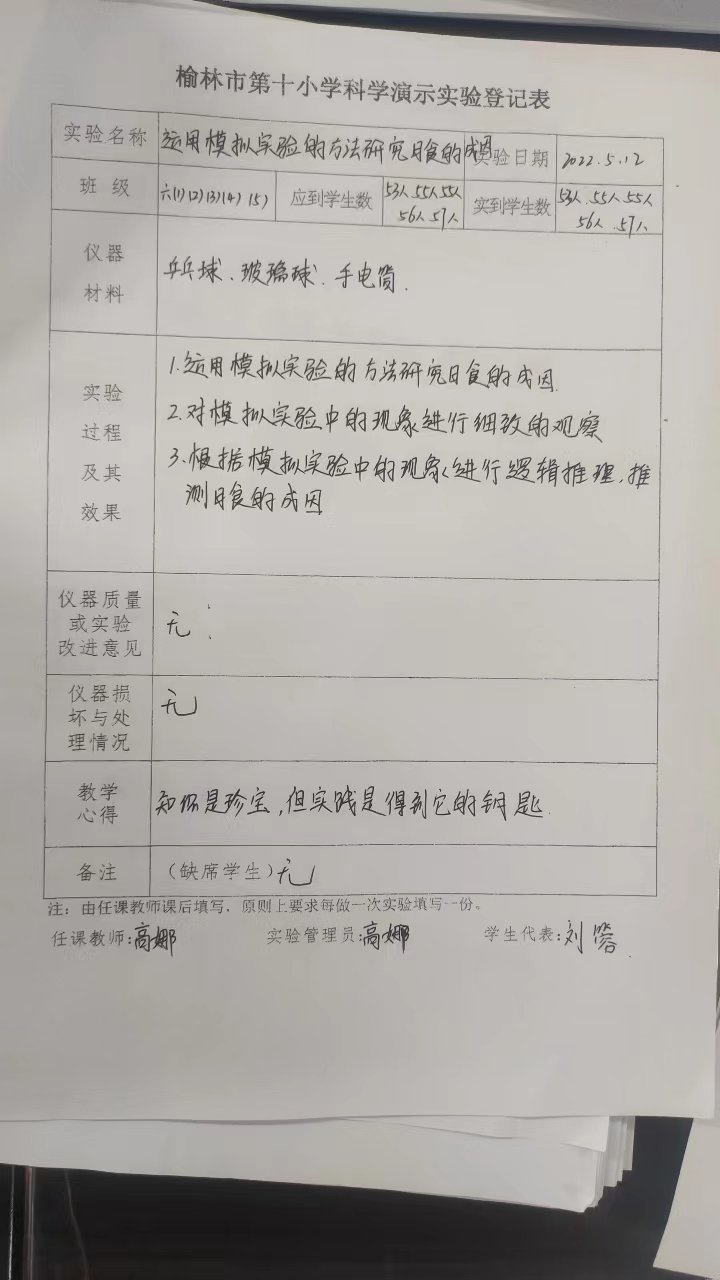 榆林市第十小学科学演示实验登记表
实验名称 运用模拟实验的方法研究日食的成因 实验日期 2022.5.12
班 级 六(1)(2)(3)(4)(5) 应到学生数 53人 55人 55人 56人 57人 实到学生数 53人、55人、55人 56人、57人
仪器
材料
乒乓球、玻璃球、手电筒.
实验
过程
及其
效果
1.运用模拟实验的方法研究日食的成因.
2.对模拟实验中的现象进行细致的观察
3.根据模拟实验中的现象进行逻辑推理,推
测日食的成因
仪器质量
或实验
改进意见
无
仪器损
坏与处
理情况
无
教学
心得
知识是珍宝,但实践是得到它的钥匙.
备注 (缺席学生)无
注:由任课教师课后填写,原则上要求每做一次实验填写一份。
任课教师:高娜 实验管理员:高娜 学生代表:刘蓉